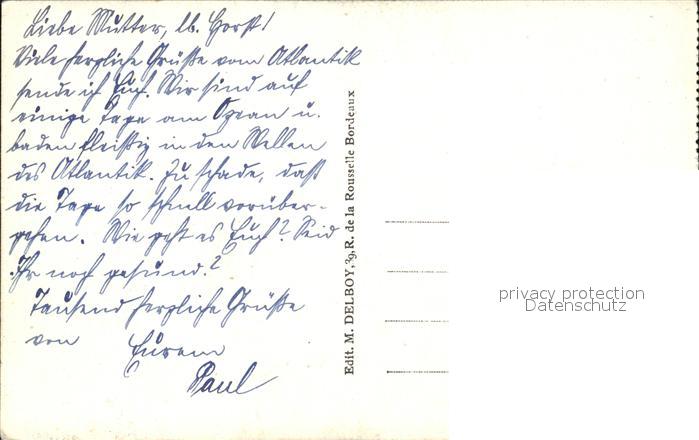 Liebe Mutter, lb. Horst!
Viele herzliche Grüße vom Atlantik
sende ich Euch. Wir sind auf
einige Tage am Ozean u.
baden fleißig in den Wellen
des Atlantik. Zu schade, daß
die Tage so schnell vorüber-
gehen. Wie geht es Euch? Seid
Ihr noch gesund?
Tausend herzliche Grüße
von Eurem
Paul
Edit. M. DELBOY, 39, R. de la Rousselle Bordeaux
privacy protection
Datenschutz